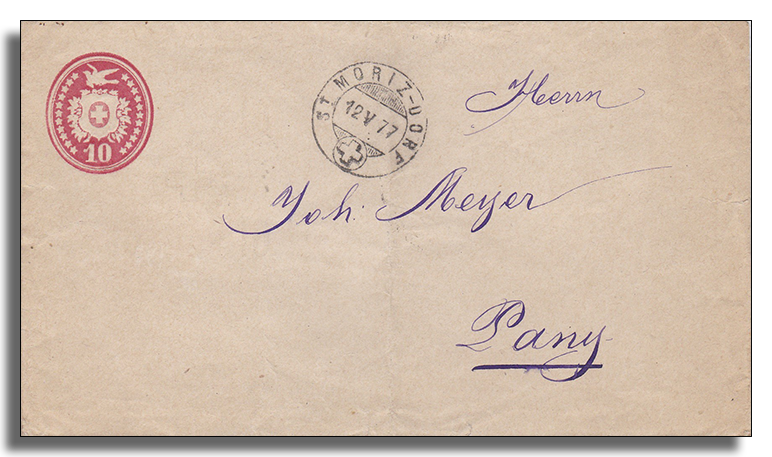 10
ST. MORIZ-DORF
12 V 77
Herrn
Joh. Meyer
Pany